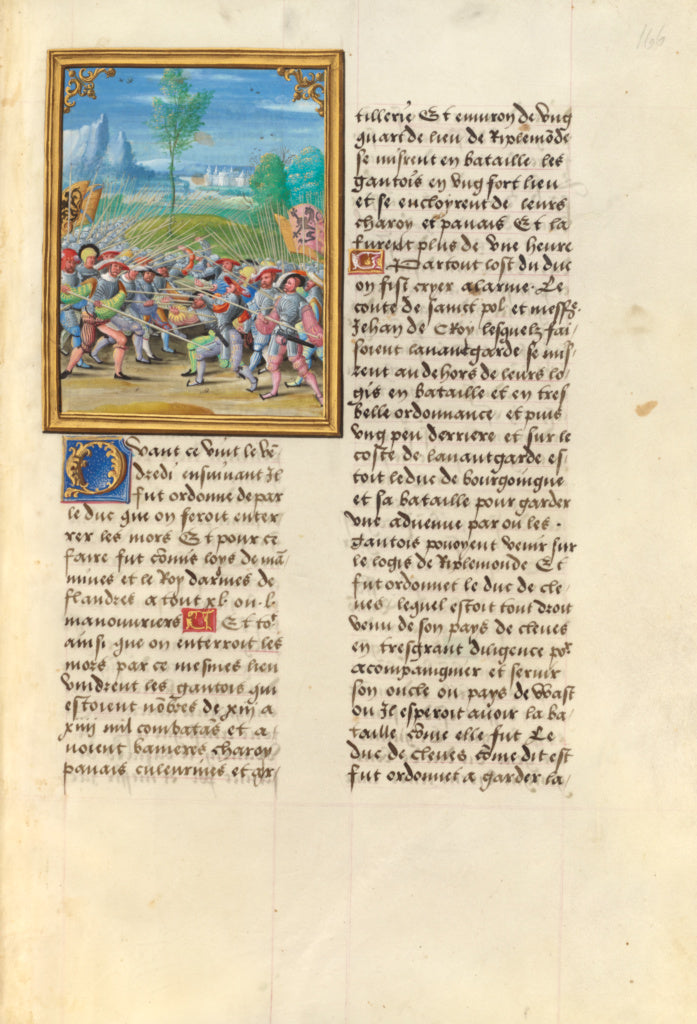 166
Quant ce vint le ven
dredi ensuivant Il
fut ordonne de par
le duc que on feroit enter
rer les mors Et pour ce
faire fut cōmis loys de mā
mines et le Roy darmes de
flandres a tout xl. ou .l.
manouvriers Et toꝰ
ainsi que on enterroit les
mors par ce mesmes lieu
vindrent les gantois qui
estoient nōbres de xiii a
xiiii mil combatās et a
voient banieres charoy
pavais culeurines et ar
tillerie Et environ de ung
quart de lieu de Riplemōde
se misrent en bataille les
gantois en ung fort lieu
et se encloyrent de leurs
charoy et pavais Et la
furent plus de une heure
Partout lost du duc
on fist cryer alarme. Le
conte de sainct pol. et messꝰ.
Jehan de Croy lesquelz fai
soient lavantgarde se mis
rent au dehors de leurs lo
gis en bataille et en tres
belle ordonnance et puis
ung peu derriere et sur le
coste de lavantgarde es
toit le duc de bourgoingne
et sa bataille pour garder
une advenue par ou les
gantois pouoyent venir sur
le logis de Riplemonde Et
fut ordonnet le duc de cle
ves, lequel estoit tout droit
venu de son pays de cleves
en tresgrant diligence poʳ
acompaingnier et servir
son oncle ou pays de Wast
ou Il esperoit avoir la ba
taille cōme elle fut Le
duc de cleves cōme dit est
fut ordonnet a garder la